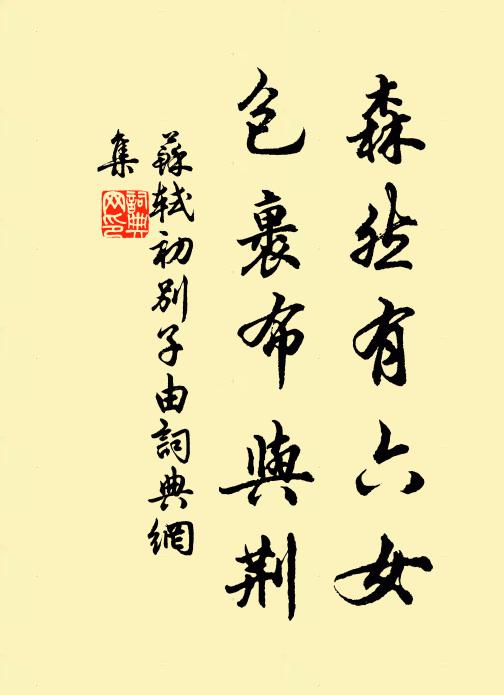 森然有六女
包裹布與荆
蘇軾初別子由詞典網
集
詞典
网印